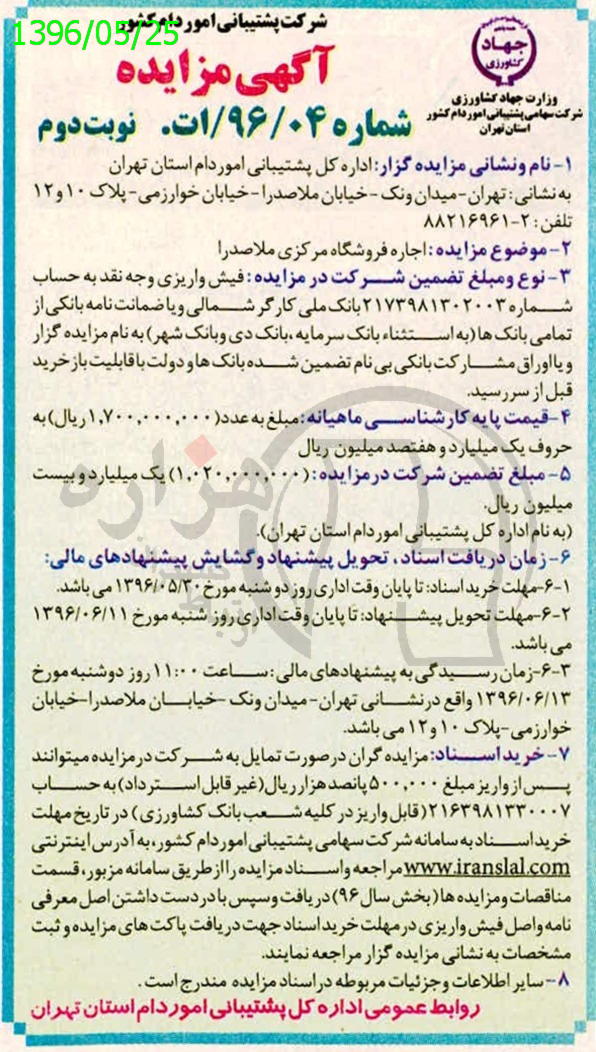 1396/05/25
شرکت پشتیبانی امور دام کشور
آگهی مزایده
شماره ۹۶/۰۴/ات. نوبت دوم
جهاد
کشاورزی
وزارت جهاد کشاورزی
شرکت سهامی پشتیبانی امور دام کشور
استان تهران
۱- نام ونشانی مزایده گزار: اداره کل پشتیبانی امور دام استان تهران
به نشانی: تهران- میدان ونک - خیابان ملاصدرا - خیابان خوارزمی- پلاک ۱۰ و ۱۲
تلفن: ۲-۸۸۲۱۶۹۶۱
۲- موضوع مزایده: اجاره فروشگاه مرکزی ملاصدرا
۳- نوع ومبلغ تضمین شرکت در مزایده: فیش واریزی وجه نقد به حساب
شماره ۲۱۷۳۹۸۱۳۰۲۰۰۳ بانک ملی کارگر شمالی ویا ضمانت نامه بانکی از
تمامی بانک ها (به استثناء بانک سرمایه، بانک دی وبانک شهر) به نام مزایده گزار
ویا اوراق مشارکت بانکی بی نام تضمین شده بانک ها و دولت با قابلیت بازخرید
قبل از سررسید.
۴- قیمت پایه کارشناسی ماهیانه: مبلغ به عدد (۱,۷۰۰,۰۰۰,۰۰۰ ریال) به
حروف یک میلیارد و هفتصد میلیون ریال
۵- مبلغ تضمین شرکت در مزایده: (۱,۰۲۰,۰۰۰,۰۰۰) یک میلیارد و بیست
میلیون ریال.
(به نام اداره کل پشتیبانی امور دام استان تهران).
۶- زمان دریافت اسناد، تحویل پیشنهاد و گشایش پیشنهادهای مالی:
۶-۱- مهلت خرید اسناد: تا پایان وقت اداری روز دو شنبه مورخ ۱۳۹۶/۰۵/۳۰ می باشد.
۶-۲- مهلت تحویل پیشنهاد: تا پایان وقت اداری روز شنبه مورخ ۱۳۹۶/۰۶/۱۱
می باشد.
۶-۳- زمان رسیدگی به پیشنهادهای مالی: ساعت ۱۱:۰۰ روز دوشنبه مورخ
۱۳۹۶/۰۶/۱۳ واقع در نشانی تهران- میدان ونک - خیابان ملاصدرا- خیابان
خوارزمی- پلاک ۱۰ و ۱۲ می باشد.
۷- خرید اسناد: مزایده گران در صورت تمایل به شرکت در مزایده میتوانند
پس از واریز مبلغ ۵۰۰,۰۰۰ پانصد هزار ریال (غیر قابل استرداد) به حساب
۲۱۶۳۹۸۱۳۳۰۰۰۷ (قابل واریز در کلیه شعب بانک کشاورزی) در تاریخ مهلت
خرید اسناد به سامانه شرکت سهامی پشتیبانی امور دام کشور، به آدرس اینترنتی
www.iranslal.com مراجعه واسناد مزایده را از طریق سامانه مزبور، قسمت
مناقصات ومزایده ها (بخش سال ۹۶) دریافت وسپس با در دست داشتن اصل معرفی
نامه واصل فیش واریزی در مهلت خرید اسناد جهت دریافت پاکت های مزایده و ثبت
مشخصات به نشانی مزایده گزار مراجعه نمایند.
۸- سایر اطلاعات و جزئیات مربوطه در اسناد مزایده مندرج است.
روابط عمومی اداره کل پشتیبانی امور دام استان تهران
هزاره